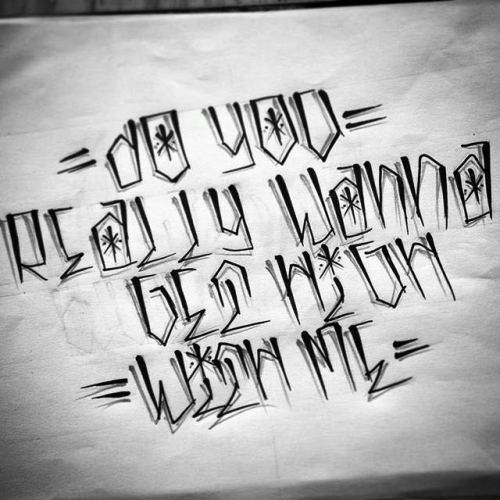 =do you=
really wanna
get high
with me=